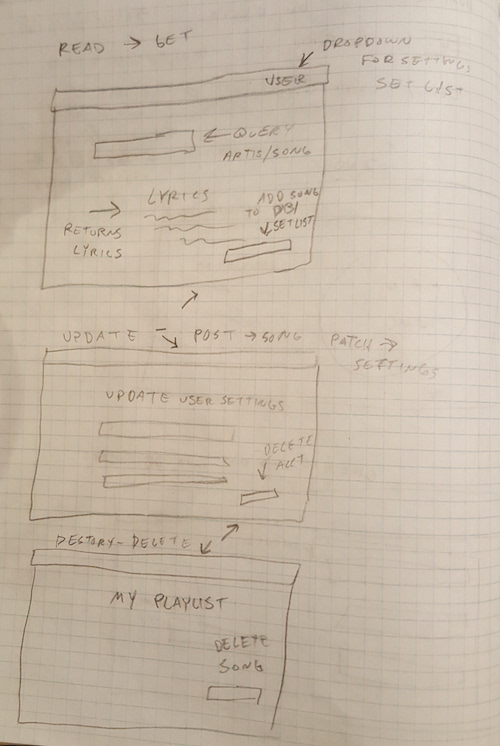 READ → GET
DROPDOWN
FOR SETTING,
SET LIST
USER
← QUERY
ARTIS/SONG
LYRICS
ADD SONG
TO DB/
SETLIST
→
RETURNS
LYRICS
UPDATE → POST → SONG
PATCH →
SETTINGS
UPDATE USER SETTINGS
DELETE
ACCT
DESTORY - DELETE
MY PLAYLIST
DELETE
SONG